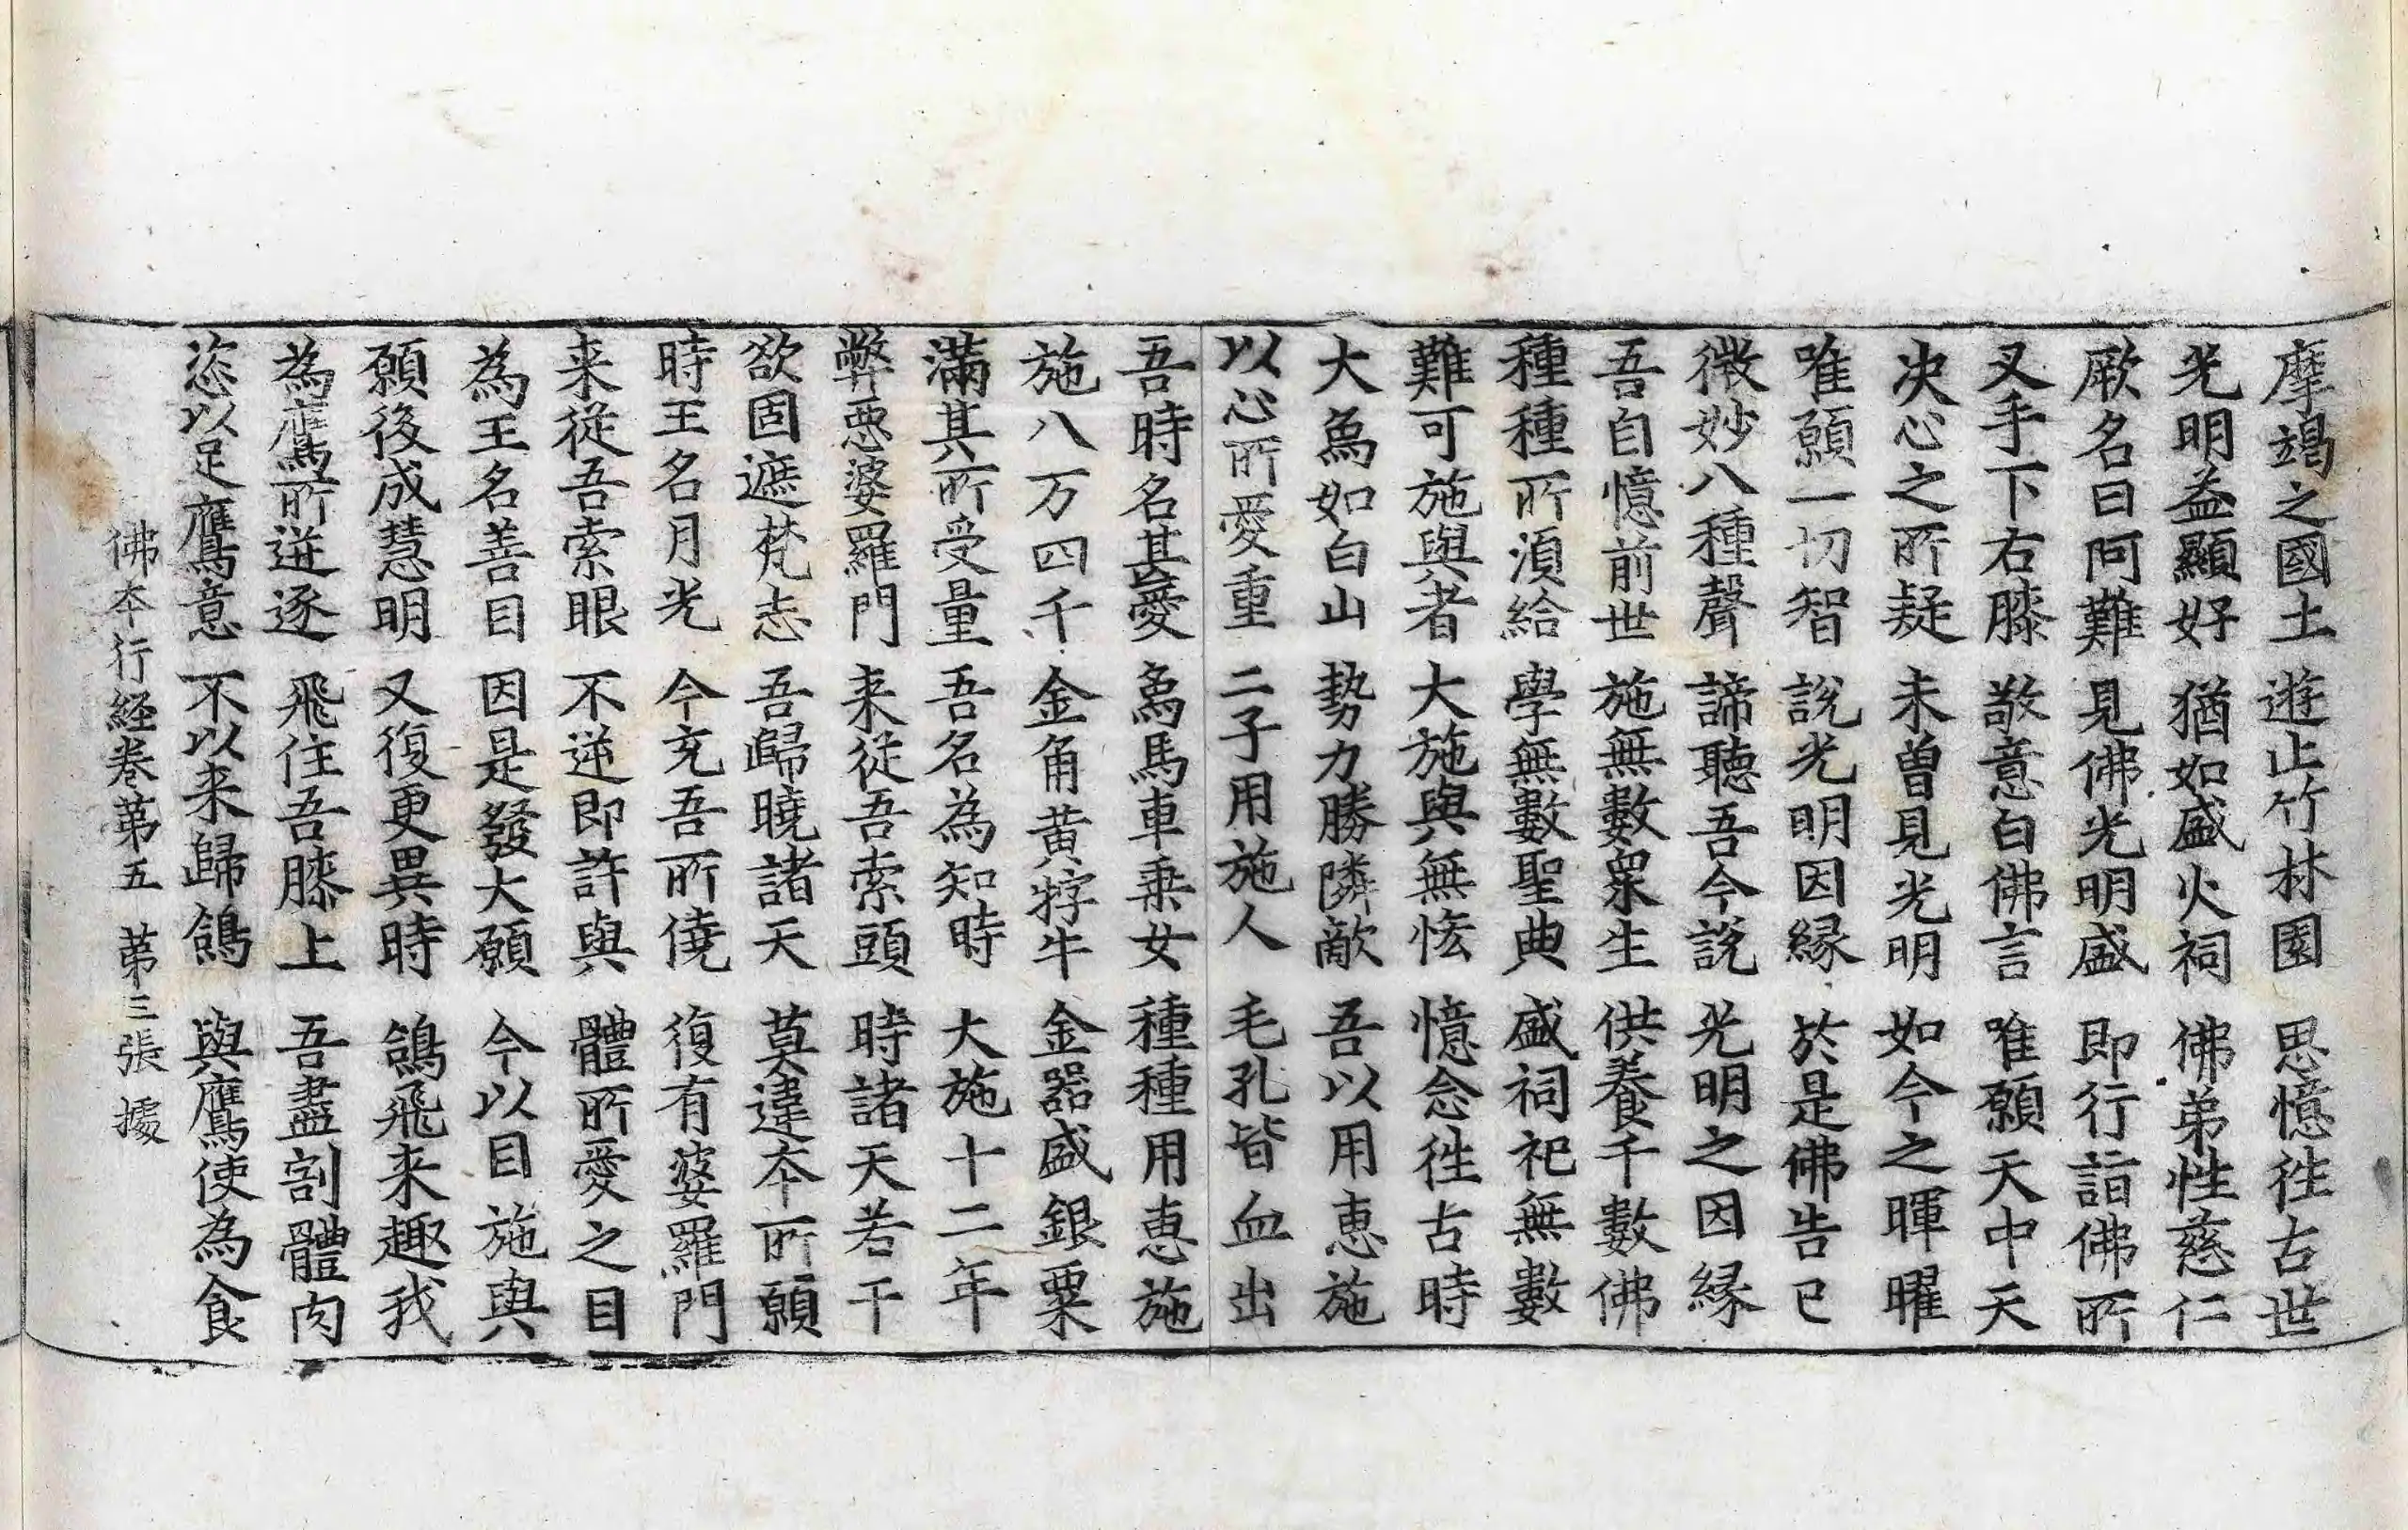 摩竭之國土　遊止竹林園　思憶徃古世
光明益顯好　猶如盛火祠　佛弟性慈仁
厥名曰阿難　見佛光明盛　即行詣佛所
叉手下右膝　敬意白佛言　唯願天中天
决心之所疑　未曽見光明　如今之暉曜
唯願一切智　說光明因縁　於是佛告已
微妙八種聲　諦聽吾今說　光明之因縁
吾自憶前世　施無數衆生　供養千數佛
種種所湏給　學無數聖典　盛祠祀無數
難可施與者　大施與無恡　憶念徃古時
大爲如白山　勢力勝隣敵　吾以用惠施
以心所愛重　二子用施人　毛孔皆血出
吾時名甚愛　爲馬車乗女　種種用惠施
施八万四千　金角黄牸牛　金器盛銀粟
滿其所受量　吾名為知時　大施十二年
弊惡婆羅門　来從吾索頭　時諸天若干
欲固遮梵志　吾歸曉諸天　莫違夲所願
時王名月光　今充吾所僥　復有婆羅門
来從吾索眼　不逆即許與　體所愛之目
為王名善目　因是發大願　今以目施與
願後成慧明　又復更異時　鴿飛来趣我
為鷹所逬逐　飛住吾膝上　吾盡割體肉
恣以足鷹意　不以来歸鴿　與鷹使為食
佛夲行経卷第五　第三張　據